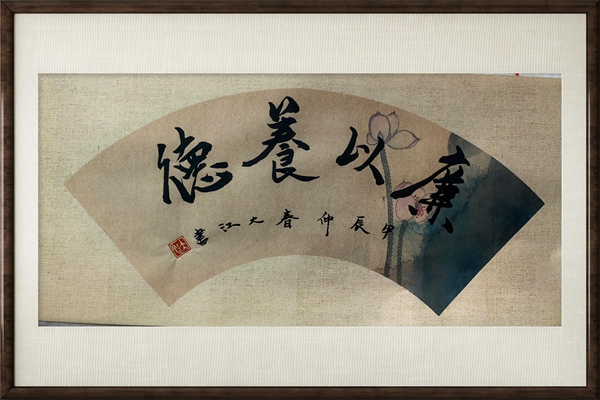 廉以養德
甲辰仲春大江書